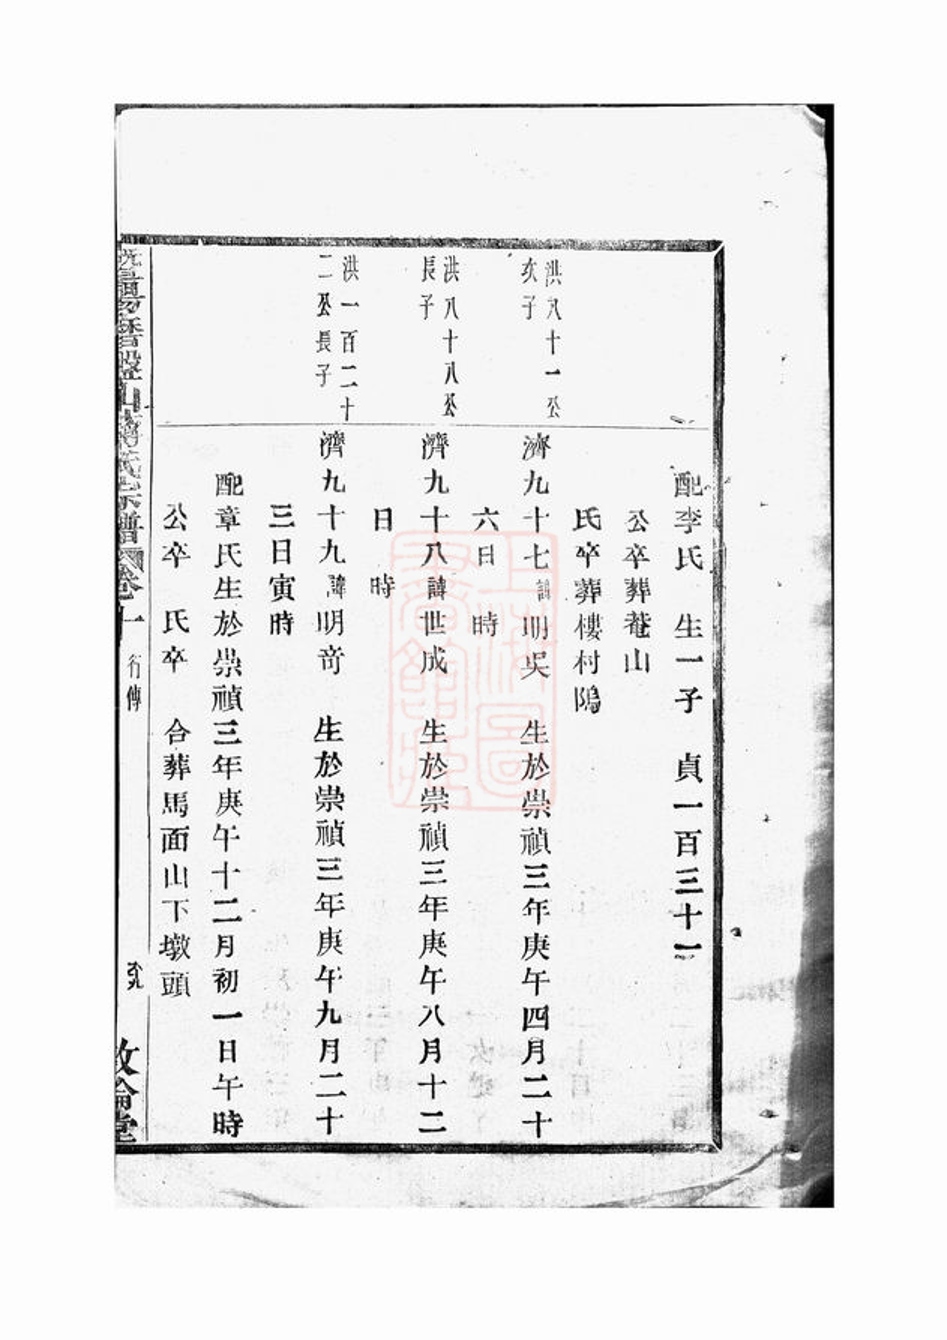 配李氏　生一子　貞一百三十一
公卒葬菴山
氏卒葬樓村隖
洪八十一公
次子
濟九十七諱明吳　生於崇禎三年庚午四月二十
六日　時
洪八十八公
長子
濟九十八諱世成　生於崇禎三年庚午八月十二
日　時
洪一百二十
二公長子
濟九十九諱明奇　生於崇禎三年庚午九月二十
三日寅時
配章氏生於崇禎三年庚午十二月初一日午時
公卒　氏卒　合葬馬面山下墩頭
山傅氏宗譜 卷十 行傳
敦倫堂
上海圖書館藏